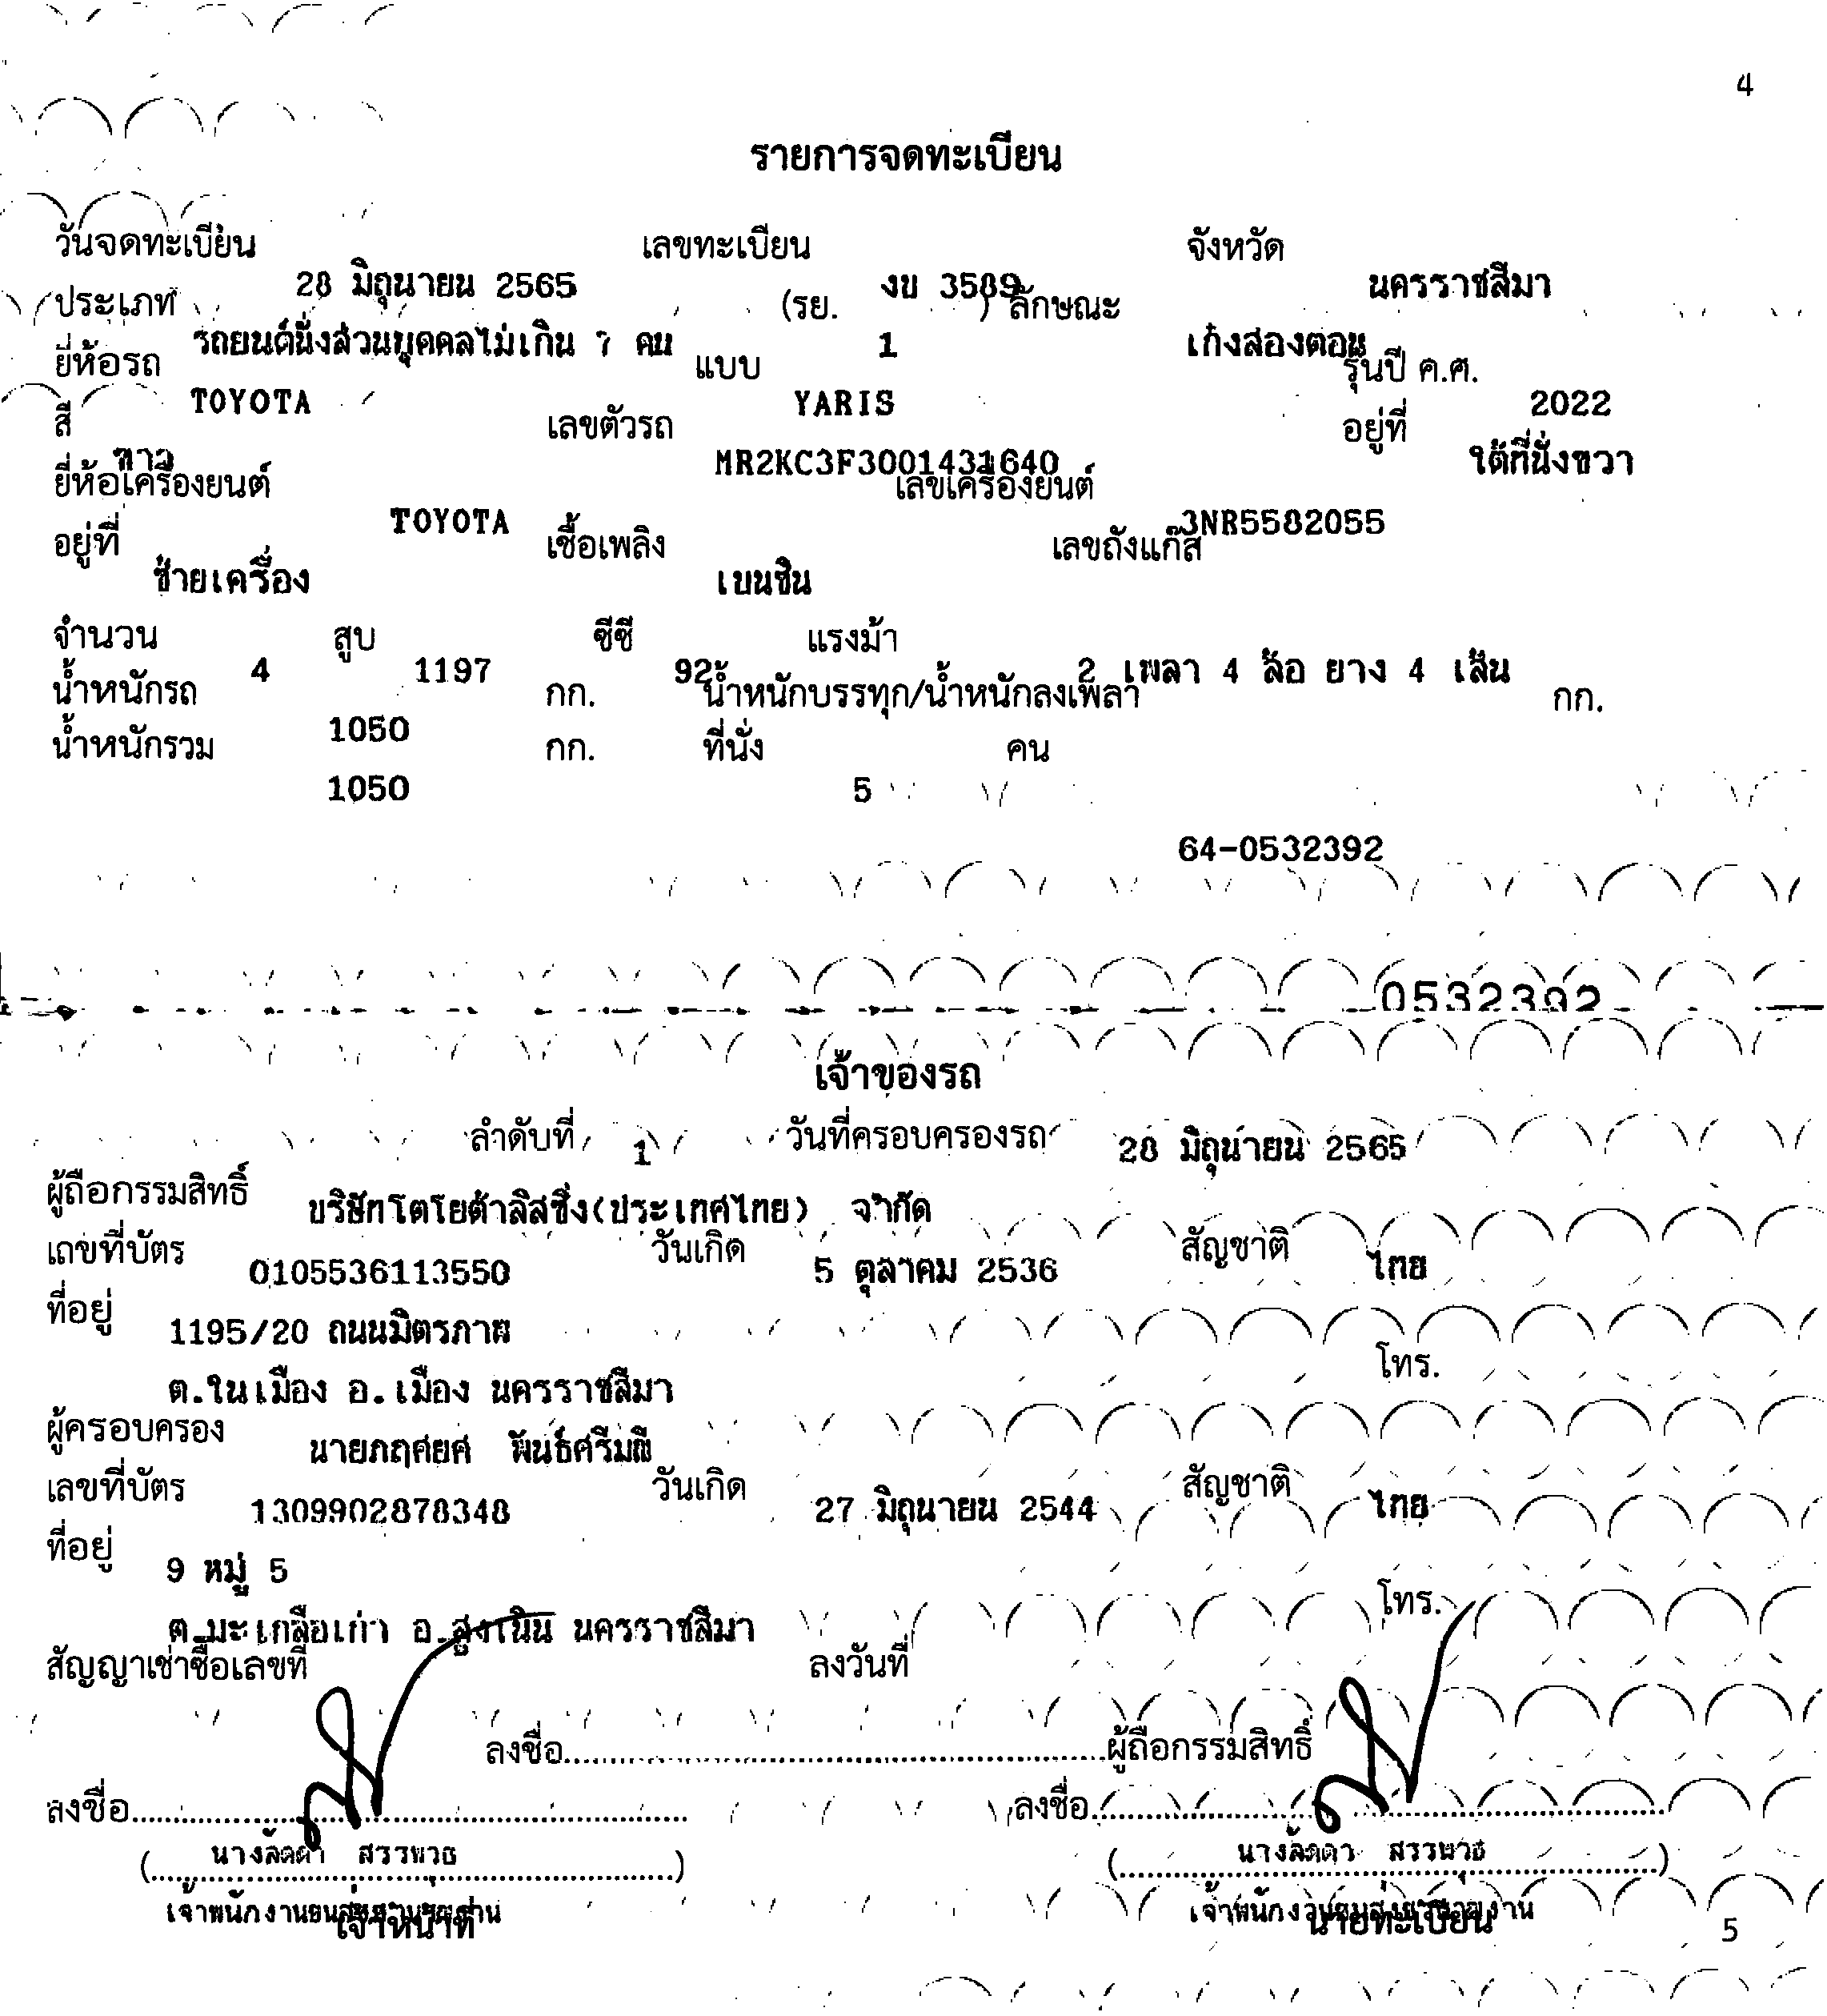 4
รายการจดทะเบียน
วันจดทะเบียน 28 มิถุนายน 2565 เลขทะเบียน งข 3589 จังหวัด นครราชสีมา
ประเภท รถยนต์นั่งส่วนบุคคลไม่เกิน 7 คน (รย. 1 ) ลักษณะ เก๋งสองตอน
ยี่ห้อรถ TOYOTA แบบ YARIS รุ่นปี ค.ศ. 2022
สี ขาว เลขตัวรถ MR2KC3F3001431640 อยู่ที่ ใต้ที่นั่งขวา
ยี่ห้อเครื่องยนต์ TOYOTA เลขเครื่องยนต์ 3NR5582055
อยู่ที่ ซ้ายเครื่อง เชื้อเพลิง เบนซิน เลขถังแก๊ส
จำนวน 4 สูบ 1197 ซีซี 92 แรงม้า 2 เพลา 4 ล้อ ยาง 4 เส้น
น้ำหนักรถ 1050 กก. น้ำหนักบรรทุก/น้ำหนักลงเพลา กก.
น้ำหนักรวม 1050 กก. ที่นั่ง 5 คน
64-0532392
0532392
เจ้าของรถ
ลำดับที่ 1 วันที่ครอบครองรถ 28 มิถุนายน 2565
ผู้ถือกรรมสิทธิ์ บริษัทโตโยต้าลิสซิ่ง(ประเทศไทย) จำกัด
เลขที่บัตร 0105536113550 วันเกิด 5 ตุลาคม 2536 สัญชาติ ไทย
ที่อยู่ 1195/20 ถนนมิตรภาพ
ต.ในเมือง อ.เมือง นครราชสีมา โทร.
ผู้ครอบครอง นายภฤศยศ พันธ์ศรีมณี
เลขที่บัตร 1309902878348 วันเกิด 27 มิถุนายน 2544 สัญชาติ ไทย
ที่อยู่ 9 หมู่ 5
ต.มะเกลือเก่า อ.สูงเนิน นครราชสีมา โทร.
สัญญาเช่าซื้อเลขที่ ลงวันที่
ลงชื่อ ผู้ถือกรรมสิทธิ์
ลงชื่อ ลงชื่อ
(นางลัดดา สรรพวุธ) (นางลัดดา สรรพวุธ)
เจ้าพนักงานขนส่งชำนาญงาน เจ้าพนักงานขนส่งชำนาญงาน
เจ้าหน้าที่ นายทะเบียน
5